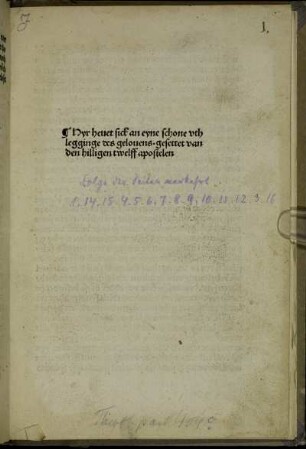 J
1.
¶ Hyr hevet sick an eyne schone vth
legginge des gelovens gesettet van
den hilligen twelff apostelen
Folge der Seiten verkehrt
1. 14. 15. 4. 5. 6. 7. 8. 9. 10. 11. 12. 3. 16
Theol. past